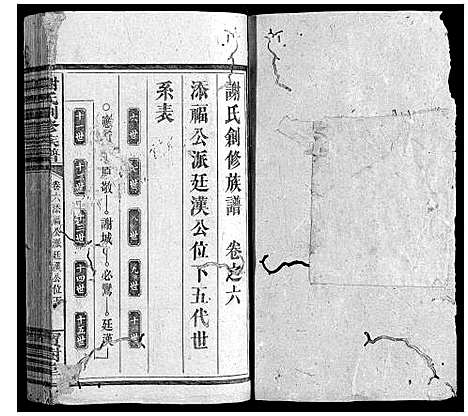 謝氏創修族譜 卷之六
添福公派廷漢公位下五代世
系表
六世 九世 十世
原敬 謝城 必鸞 廷漢
十一世 十二世 十三世 十四世 十五世
謝氏創修族譜
卷六添福公派廷漢公位下
寶樹堂